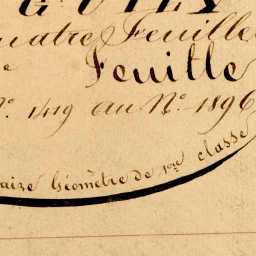 uatre Feuille
e Feuille
N°. 1419 au N°. 1896
aize Géomètre de 1ere classe